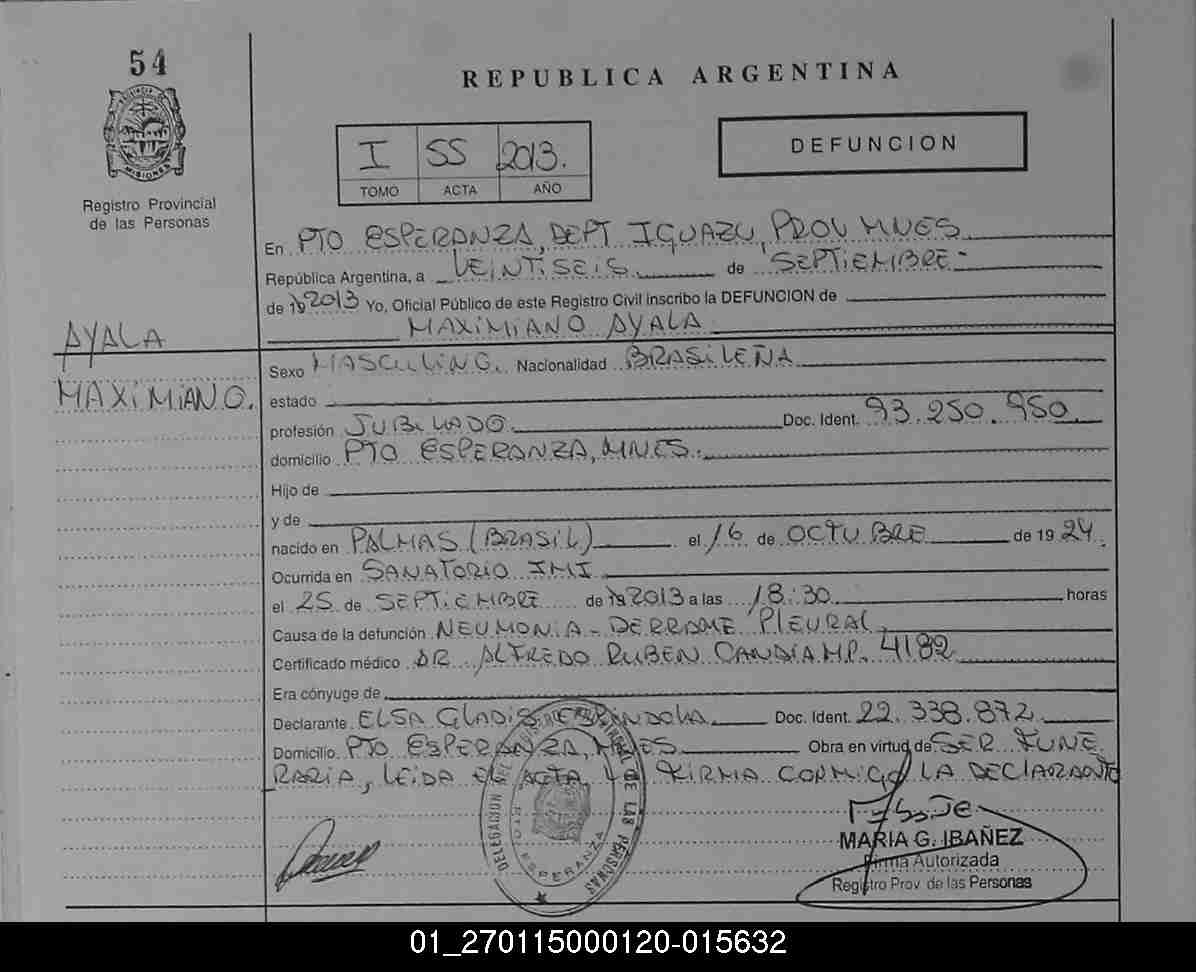 54
PROVINCIA DE MISIONES
Registro Provincial
de las Personas
REPUBLICA ARGENTINA
I SS 2013.
TOMO ACTA AÑO
DEFUNCION
En PTO ESPERANZA, DEPT IGUAZU, PROV MNES
República Argentina, a VEINTISEIS de SEPTIEMBRE-
de 19 2013 Yo, Oficial Público de este Registro Civil inscribo la DEFUNCION de
MAXIMIANO AYALA
AYALA
MAXIMIANO.
Sexo MASCULINO. Nacionalidad BRASILEÑA
estado
profesión JUBILADO Doc. Ident. 93.250.950
domicilio PTO ESPERANZA, MNES.
Hijo de
y de
nacido en PALMAS (BRASIL) el 16 de OCTUBRE de 1924.
Ocurrida en SANATORIO IMI
el 25 de SEPTIEMBRE de 19 2013 a las 18:30 horas
Causa de la defunción NEUMONIA - DERRAME PLEURAL
Certificado médico DR ALFREDO RUBEN CANDIA MP. 4182
Era cónyuge de
Declarante ELSA GLADIS Doc. Ident. 22.338.872
Domicilio PTO ESPERANZA, MNES Obra en virtud de SER. FUNE
RARIA, LEIDA EL ACTA, LA FIRMA CONMIGO LA DECLARANTE
DELEGACION DEL REGISTRO PROVINCIAL DE LAS PERSONAS
PTO ESPERANZA
MARIA G. IBAÑEZ
Firma Autorizada
Registro Prov. de las Personas
01_270115000120-015632